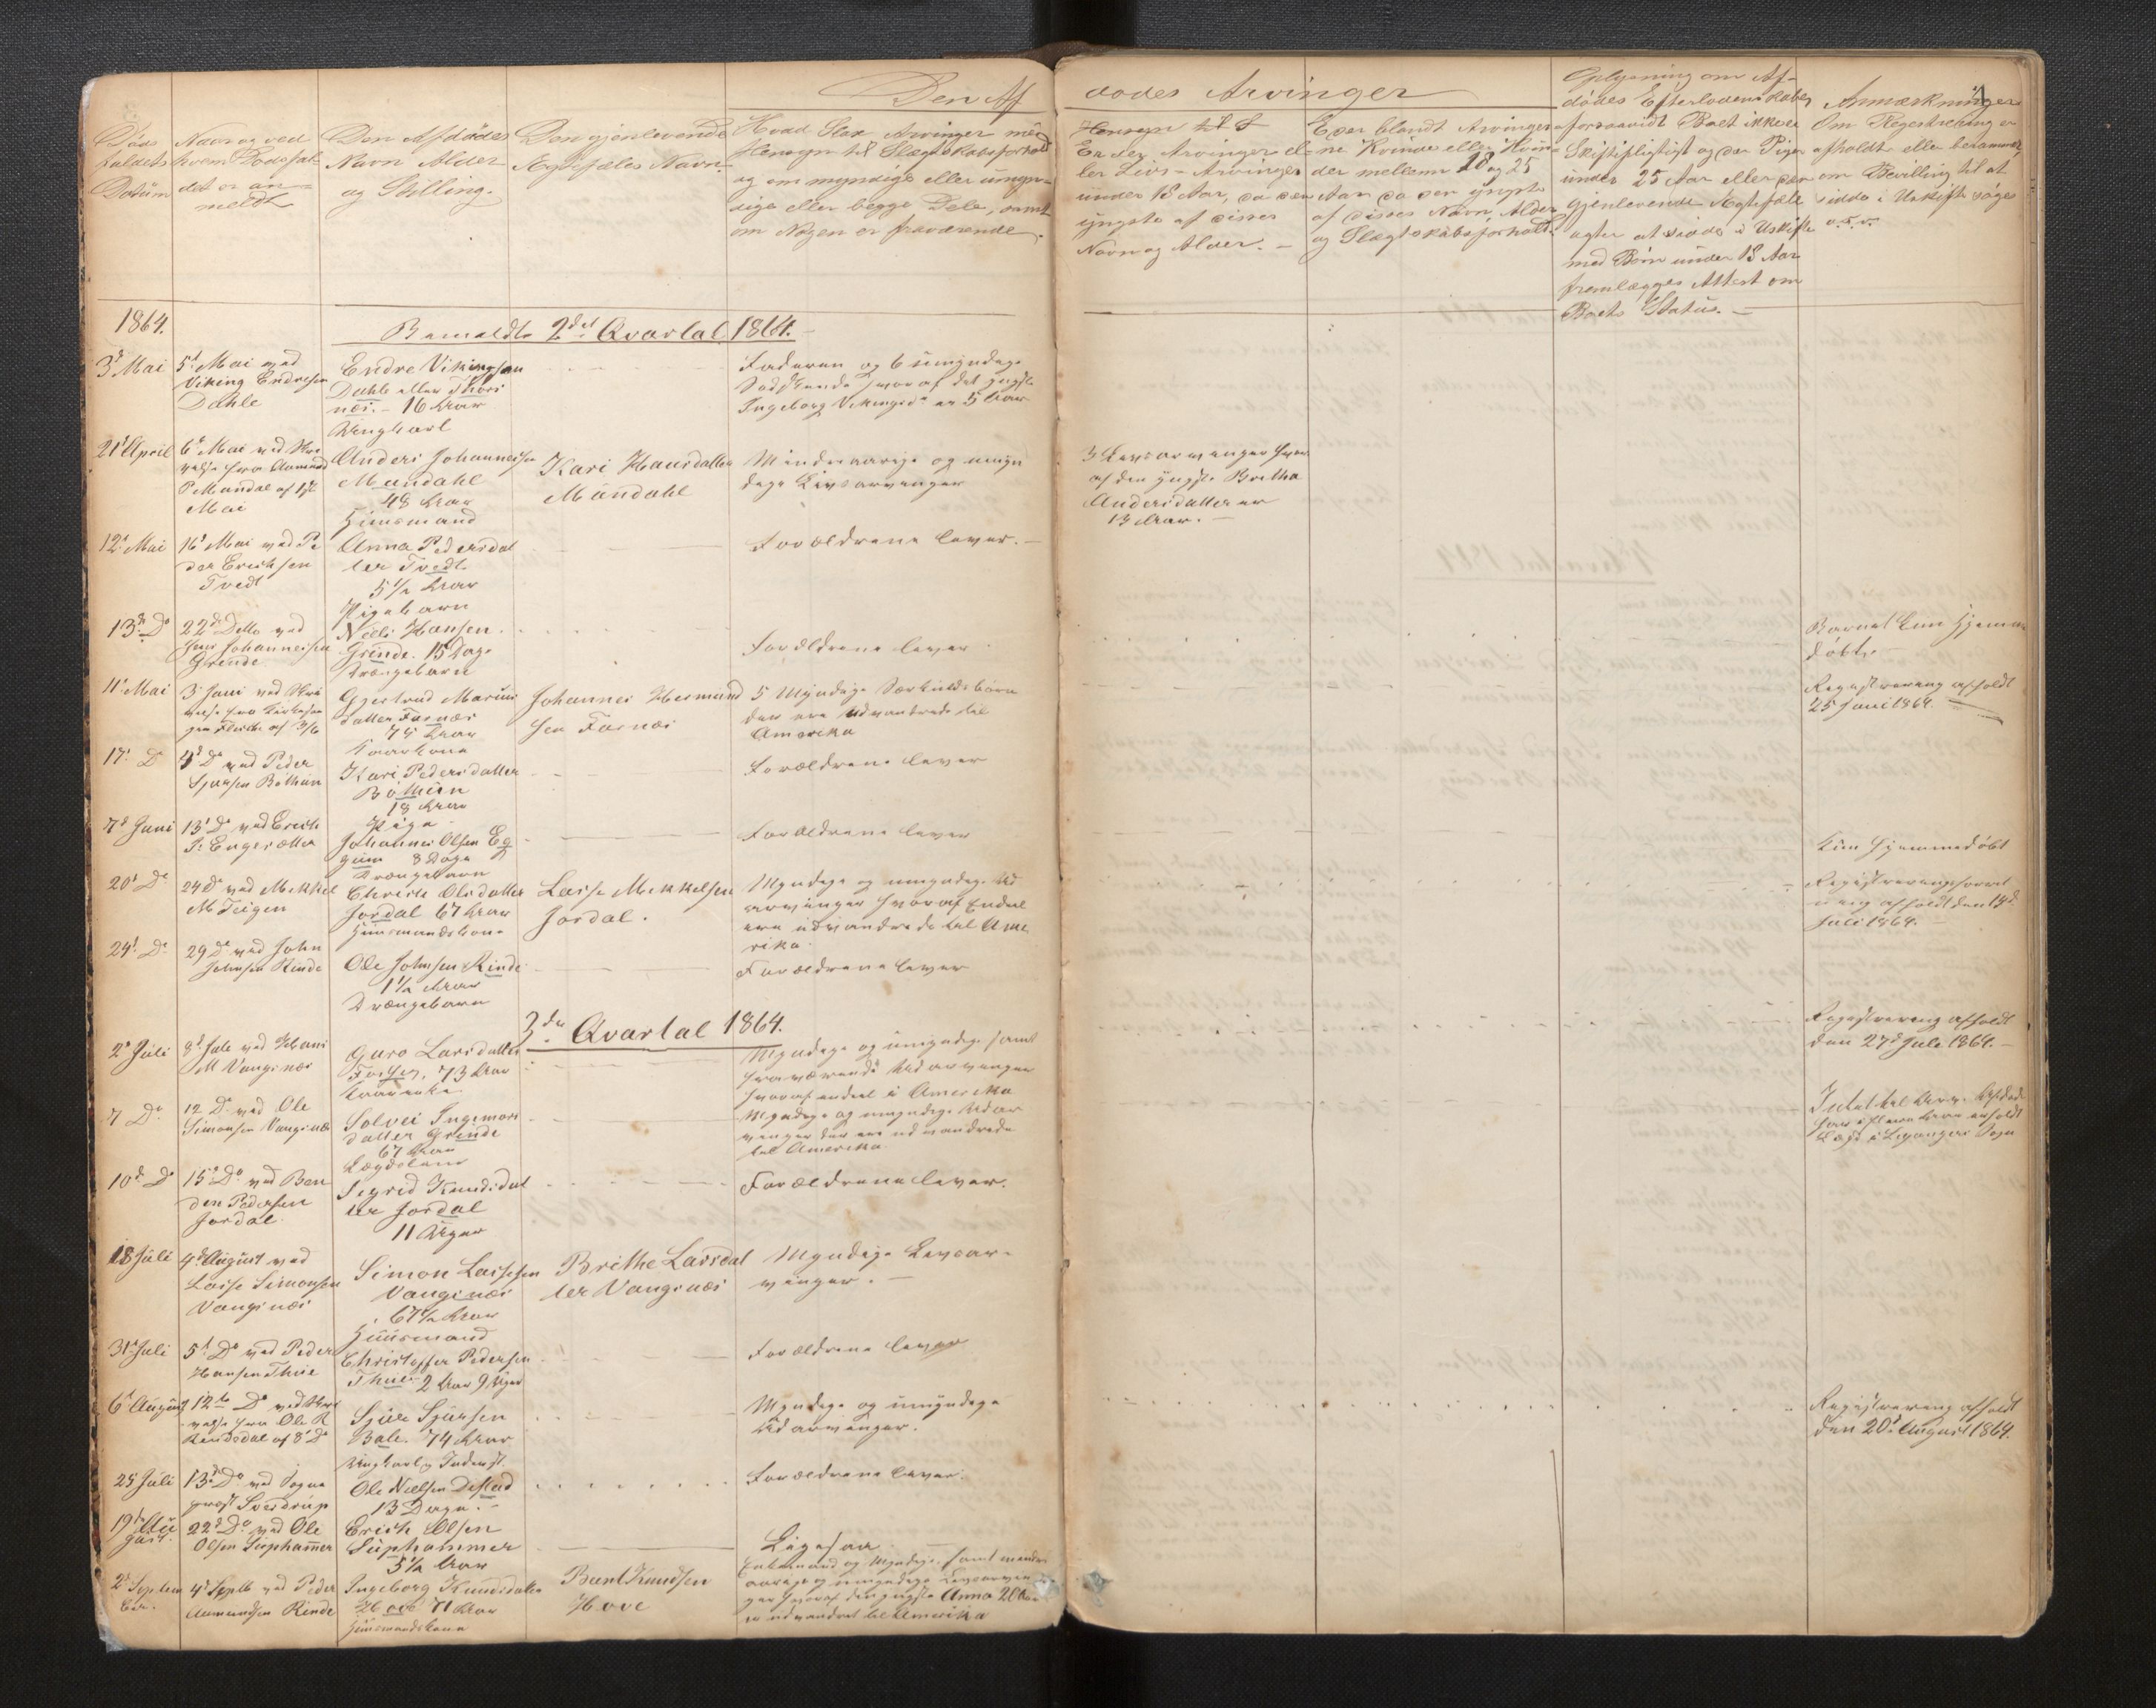 Den Af
dødes Arvinger
Døds
faldets
Datum
Navn og ved
hvem Dødsfal-
det er an-
meldt
Den Afdødes
Navn Alder
og Stilling.
Den gjenlevende
Ægtefæles Navn.
Hvad Slax Arvinger med
Hensyn til Slægtskabsforhold
og om myndige eller umyn-
dige eller begge Dele, samt
om Nogen er fraværende.
Hensyn til
Er der Arvinger el-
ler Livs-Arvinger
under 18 Aar, da den
yngste af disses
Navn og Alder. -
Er der blandt Arvinger-
ne Kvinde eller Kvin-
der mellem 18 og 25
Aar da den yngste
af disses Navn, Alder
og Slægtskabsforhold.
Oplysning om Af-
dødes Efterladenskaber
forsaavidt Boet ikke er
Skiftepligtigt og der Piger
under 25 Aar eller den
Gjenlevende Ægtefæle
agter at sidde i Uskifte
med Børn under 18 Aar
fremlægges Attest om
Boets Status. -
Anmærkninger
Om Registrering er
afholdt eller berammet,
om Bevilling til at
sidde i Uskifte søges
o.s.v.
1864.
Anmeldte 2det Qvartal 1864.
3d Mai
5d Mai ved
Viking Endresen
Dahle
Endre Vikingsen
Dahle eller Thors
næs. - 16 Aar
Ungkarl
Faderen og 6 umyndige
Sødskende hvoraf det yngste
Ingeborg Vikingsd. er 5 Aar
21d April
6d Mai ved Skri
velse fra Aamund
P Mundal af 1ste
Mai
Anders Johannessen
Mundahl
48 Aar
Huusmand
Kari Hansdatter
Mundahl
Mindreaarige og umyn
dige Livsarvinger
3 Livsarvinger hvor
af den yngste Britha
Andersdatter er
13 Aar. -
12d Mai
16d Mai ved Pe
der Erichsen
Tvedt
Anna Pedersdat
ter Tvedt
5 1/2 Aar
Pigebarn
Forældrene lever. -
13d Do
22d Ditto ved
Hans Johannessen
Grinde
Niels Hansen.
Grinde. 15 Dage
Drængebarn
Forældrene lever
Barnet kun hjemme
døbt. -
11d Mai
3 Juni ved Skri
velse fra Kirkesan
ger Flesche af 3/6
Gjertrud Marius
datter Farnæs
75 Aar
Kaarkone
Johannes Hermund
sen Farnæs
5 Myndige Særkuldsbørn
der ere udvandrede til
Amerika
Registrering afholdt
25 Juni 1864. -
17d Do
4d Do ved Peder
Sjursen Bøthun
Kari Pedersdatter
Bøthun
18 Aar
Pige
Forældrene lever
7d Juni
13d Do ved Erich
P. Engesætter
Johannes Olsen Eg
gum 8 Dage
Drængebarn
Forældrene lever
Kun hjemmedøbt
20d Do
24 Do ved Mikkel
M Teigen
Christi Olsdatter
Jordal 67 Aar
Huusmandskone
Lasse Mikkelsen
Jordal.
Myndige og umyndige Ud
arvinger hvoraf Endeel
ere udvandrede til Ame
rika
Registreringsforret
ning afholdt den 13d
Juli 1864. -
24d Do
29 Do ved John
Johnsen Rinde
Ole Johnsen Rinde
1 1/2 Aar
Drængebarn
Forældrene lever
3die Qvartal 1864.
2d Juli
8d Juli ved Hans
M Vangsnæs
Guro Larsdatter
73 Aar
Kaarenke
Myndige og umyndige samt
fraværende Udarvinger
hvoraf endeel i Amerika
Registrering afholdt
den 27d Juli 1864. -
7 Do
12 Do ved Ole
Simonsen Vangsnæs
Solvei Ingemors
datter Grinde
67 Aar
Lægdslem
Myndige og umyndige Udar
vinger der ere udvandrede
til Amerika
10d Do
15d Do ved Ben
den Pedersen
Jordal.
Sigrid Knudsdat
ter Jordal
11 Uger
Forældrene lever.
18 Juli
4d August ved
Lasse Simonsen
Vangsnæs
Simon Lassesen
Vangsnæs
67 1/2 Aar
Huusmand
Brithe Larsdat
ter Vangsnæs
Myndige Livsar-
vinger. -
31d Juli
5d Do ved Peder
Hansen Thue
Christoffer Pedersen
Thue 2 Aar 9 Uger
Forældrene lever
6d August
12te Do ved Skri
velse fra Ole R
Rendedal af 8d Do
Sjur Sjursen
Bale. 74 Aar
Ungkarl, Inderst.
Myndige og umyndige
Udarvinger.
Registrering afholdt
den 20d August 1864.
25 Juli
13d Do ved Sogne
prest Sverdrup
Ole Nielsen
13 Dage. -
Forældrene lever.
19de Au
gust.
22d Do ved Ole
Olsen Suphammer
Erich Olsen
Suphammer
5 1/2 Aar
Ligesaa
2d Septem
ber.
4d Septb ved Peder
Aamundsen Rinde
Ingeborg Knudsdatter
Hove 71 Aar
Huusmandskone
Knudsen
Hove
Enkemand og Myndige, samt mindre
aarige og umyndige Livsarvin
ger hvoraf den yngste Anna 20 Aar
er udvandret til Amerika